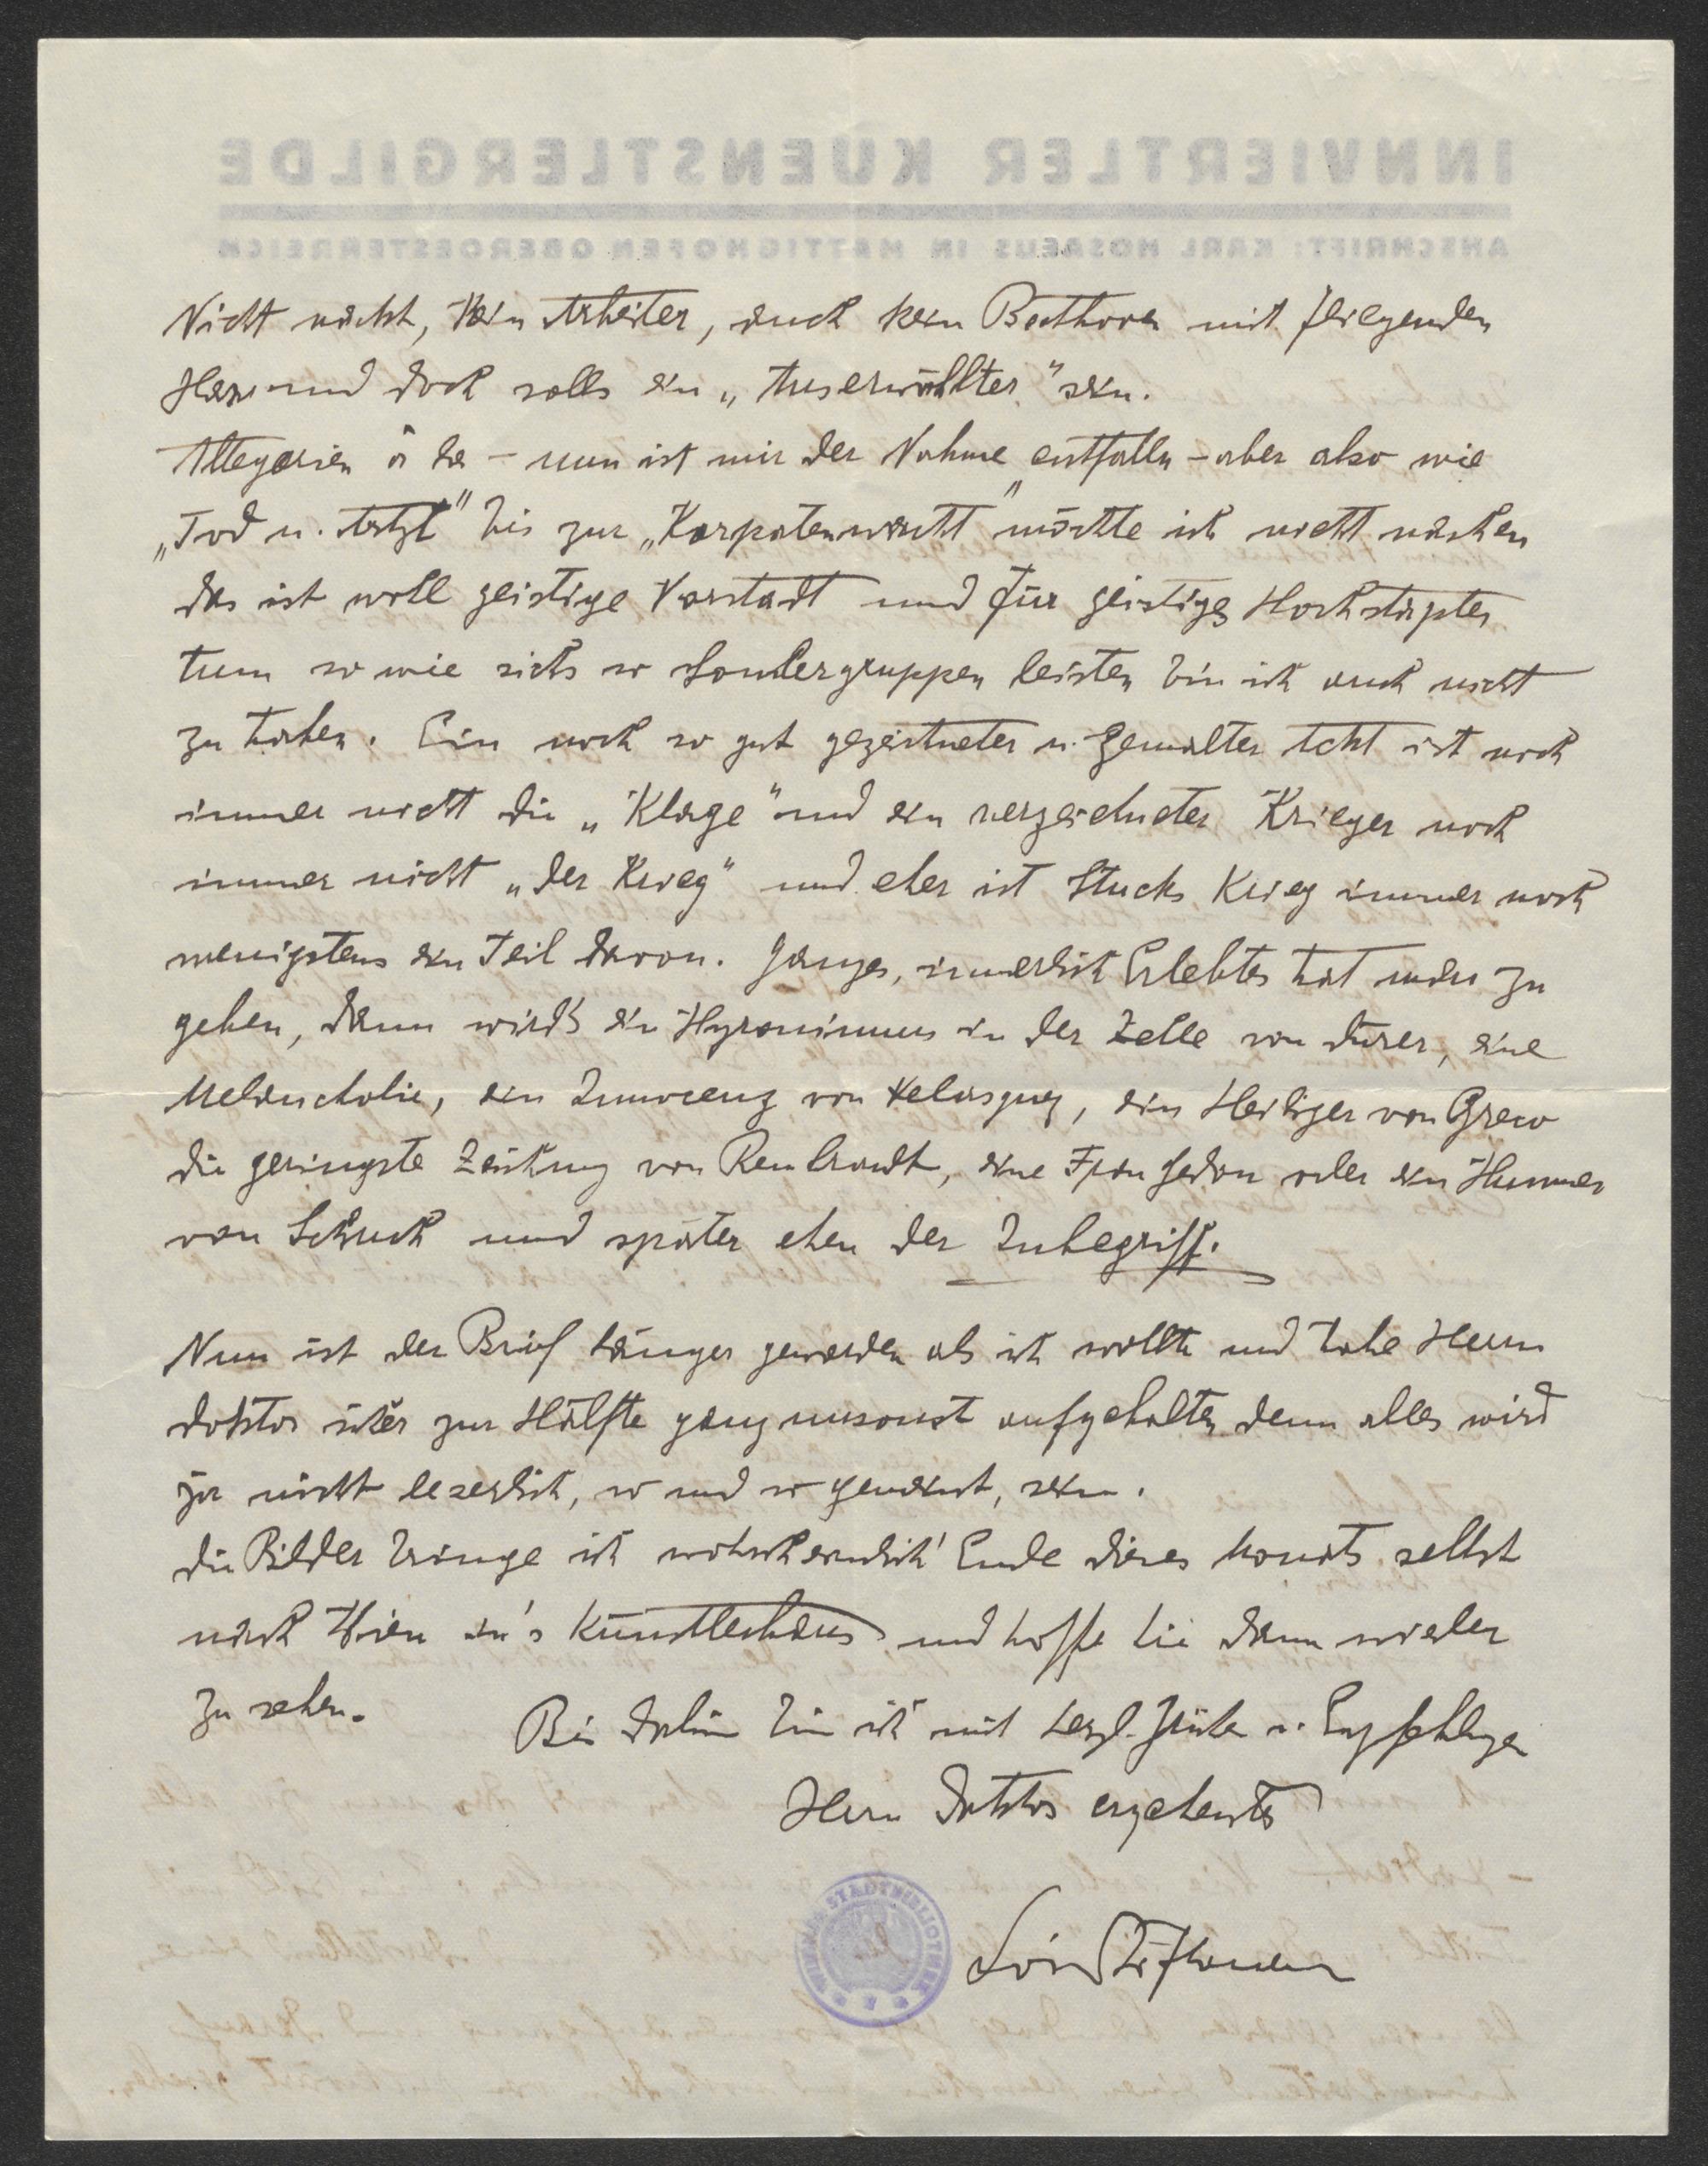 INNVIERTLER KUENSTLERGILDE
ANSCHRIFT: KARL MOSAEUS IN MATTIGHOFEN OBEROESTERREICH
Nicht nackt, kein Arbeiter, auch kein Beethoven mit fliegenden
Haar und doch solls ein „Auserwählter" sein.
Allegorien à la – nun ist mir der Nahme entfalln – aber also wie
„Tod u. Artzt" bis zur „Karpatenwacht" möchte ich nicht machen
das ist woll geistige Vorstadt und für geistiges Hochstapler
tum so wie sichs so Sondergruppen leisten bin ich auch nicht
zu haben. Ein noch so gut gezeichneter u. gemalter Acht ist noch
immer nicht die „Klage" und ein verzeichneter Krieger noch
immer nicht „der Krieg" und eher ist Stucks Krieg immer noch
wenigstens ein Teil davon. Ganzes, innerlich Erlebtes hat man zu
geben, dann wird's ein Hyronimus in der Zelle von Dürer, eine
Melancholie, ein Innocenz von Velasquez, ein Heiliger von Greco
die geringste Zeichnung von Rembrandt, eine Frau oder ein Hummer
von Schuch und später eben der Inbegriff.
Nun ist der Brief länger geworden als ich wollte und habe Herrn
Doktor sicher zur Hälfte ganz umsonst aufgehalten denn alles wird
ja nicht leserlich, so und so gemeint, sein.
Die Bilder bringe ich wahrscheinlich Ende dieses Monats selbst
nach Wien in's Künstlerhaus und hoffe Sie dann wieder
zu sehen.
Bis dahin bin ich mit herzl. Grüßen u. Empfehlungen
Herrn Doktors ergebenster
STADTBIBLIOTHEK